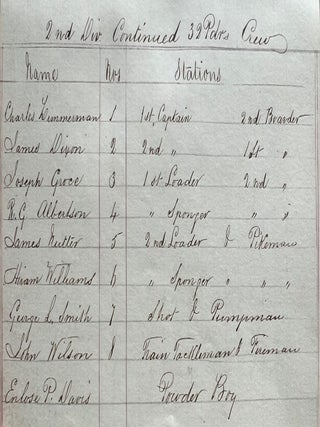 2nd Div Continued 32 Pdrs Crew
Name Nos Stations
Charles Zimmerman 1 1st Captain 2nd Boarder
James Dixon 2 2nd " 1st "
Joseph Groce 3 1st Loader 2nd "
R. G. Albertson 4 " Sponger " "
James Nutter 5 2nd Loader & Pikeman
Hiram Williams 6 " Sponger " " "
George L. Smith 7 Shot & Pumpman
John Wilson 8 Train Tackleman & Fireman
Enlose P. Davis Powder Boy